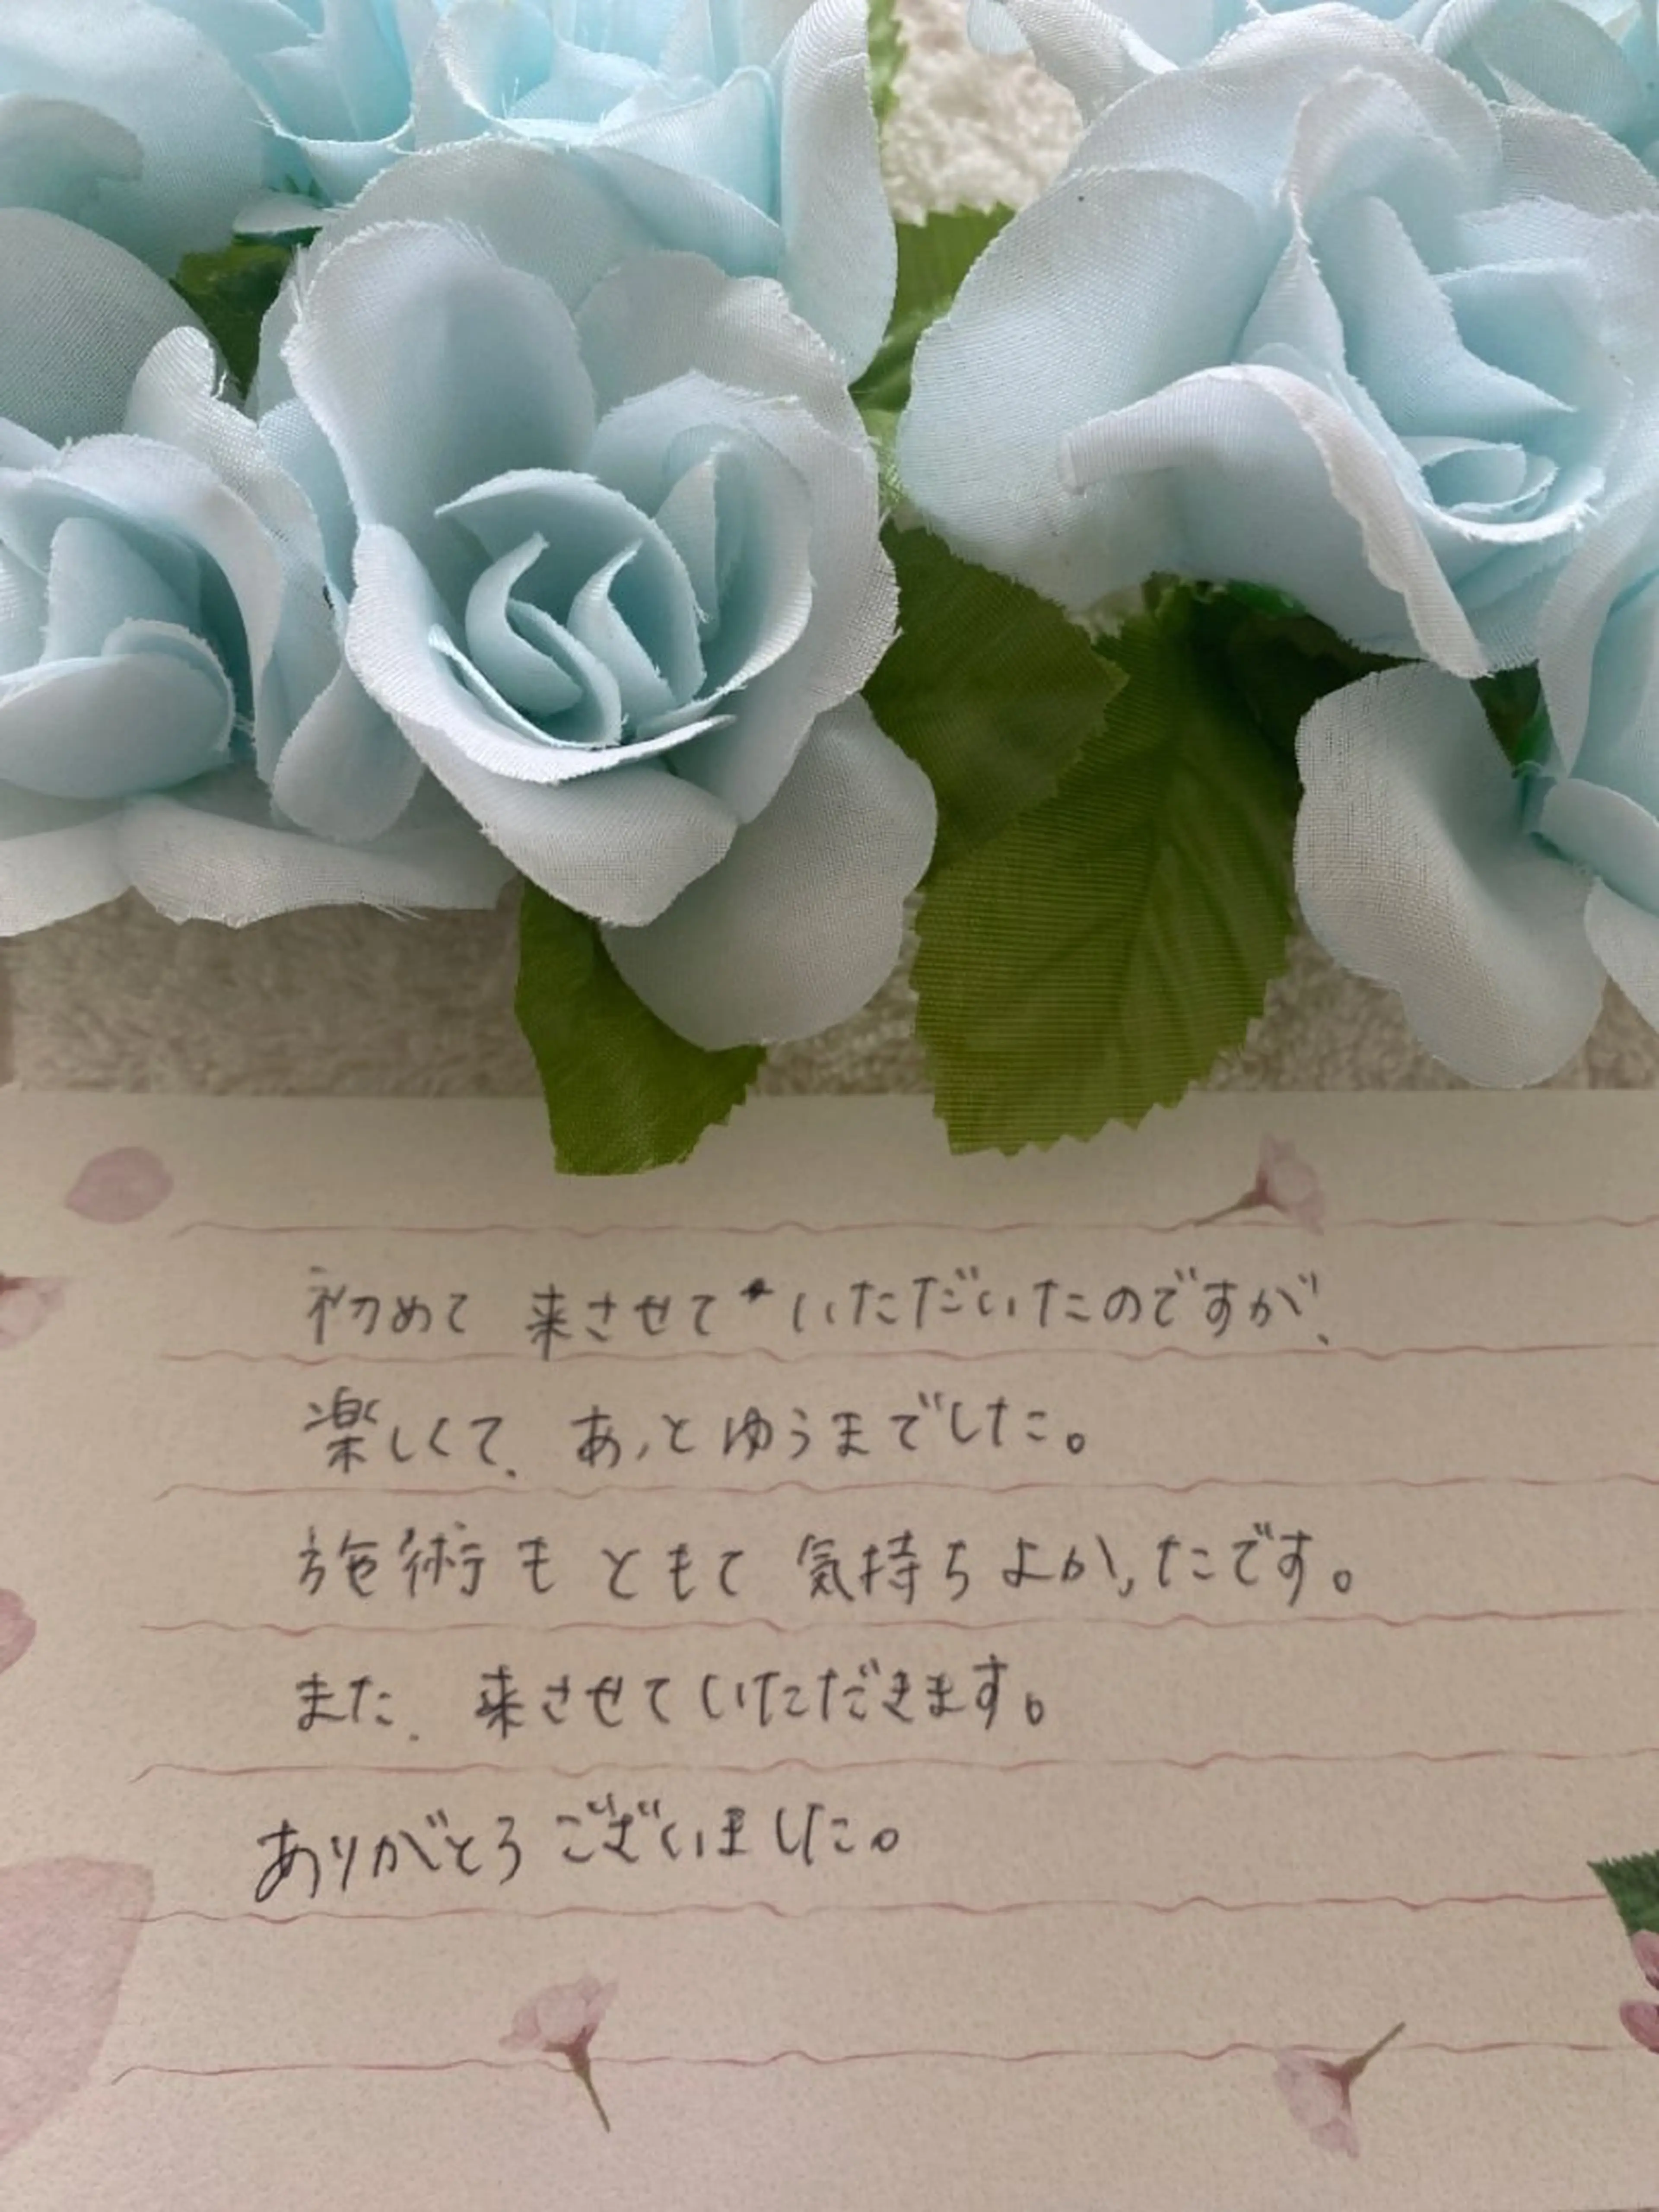 初めて 来させていただいたのですが、
楽しくて、あっとゆうまでした。
施術も ともて 気持ちよかったです。
また、来させていただきます。
ありがとうございました。